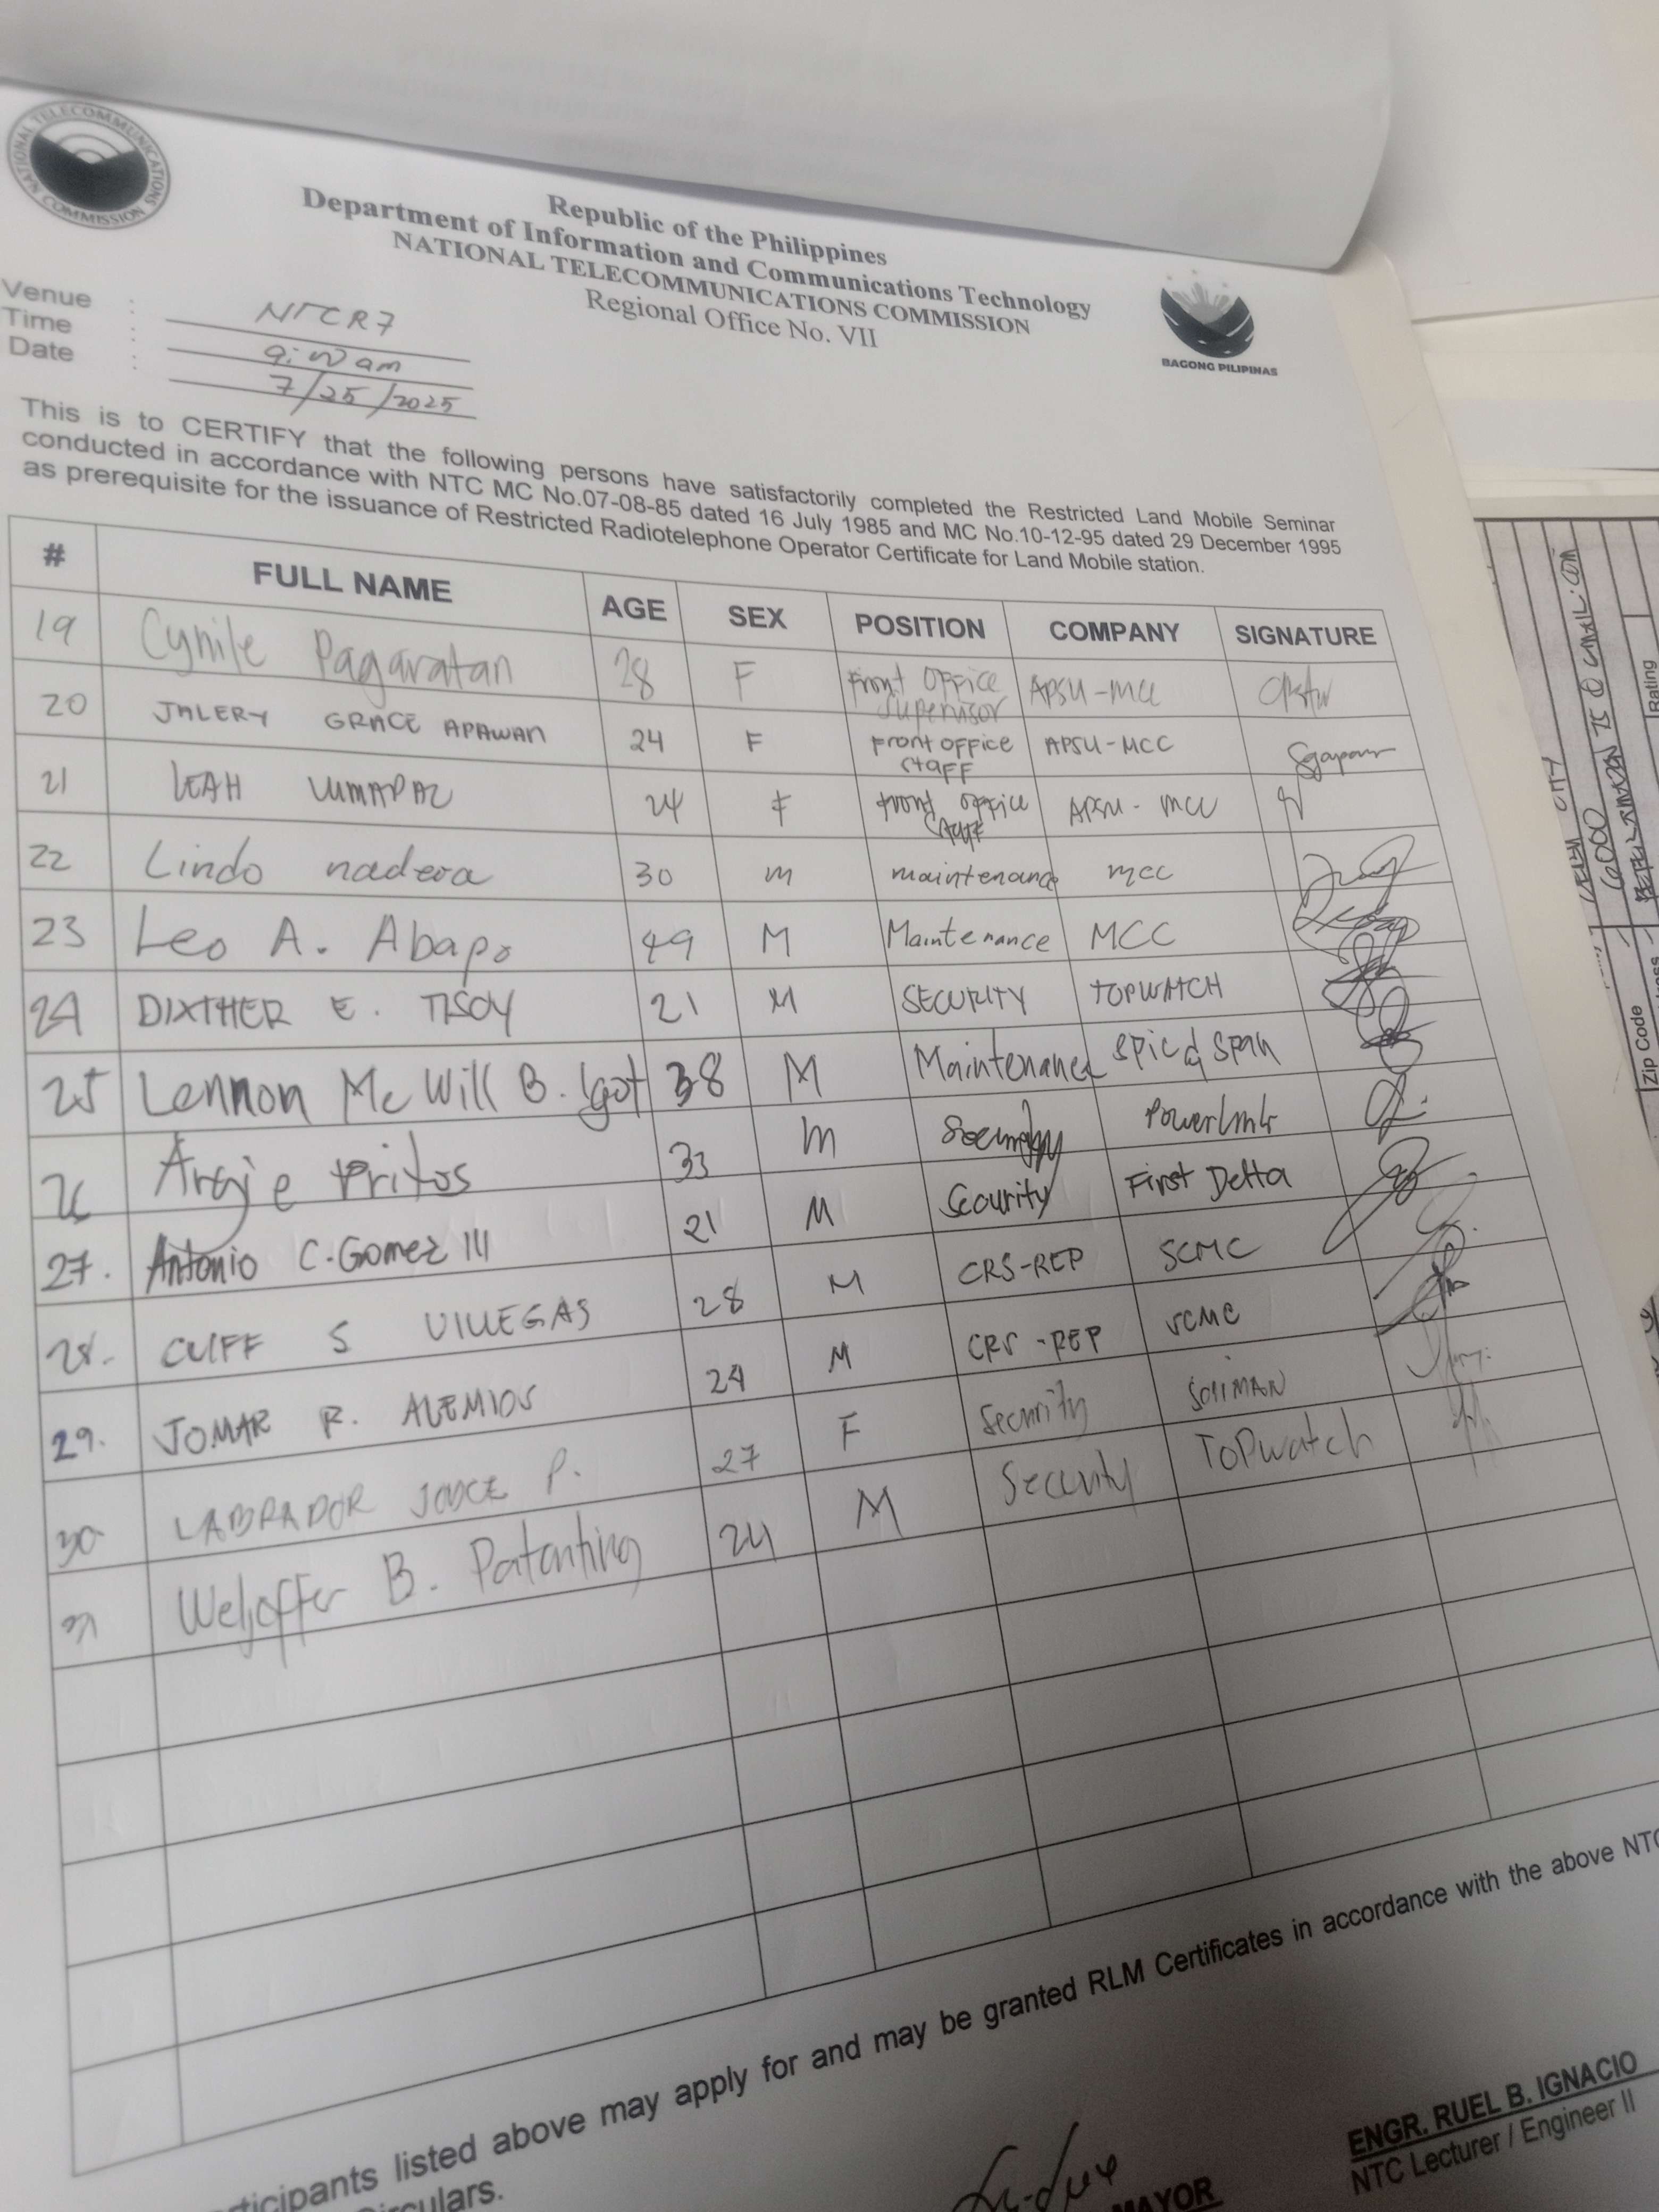 NATIONAL TELECOMMUNICATIONS COMMISSION
Republic of the Philippines
Department of Information and Communications Technology
NATIONAL TELECOMMUNICATIONS COMMISSION
Regional Office No. VII
BAGONG PILIPINAS
Venue : NTCR7
Time :
Date : 7/25/2025
This is to CERTIFY that the following persons have satisfactorily completed the Restricted Land Mobile Seminar
conducted in accordance with NTC MC No.07-08-85 dated 16 July 1985 and MC No.10-12-95 dated 29 December 1995
as prerequisite for the issuance of Restricted Radiotelephone Operator Certificate for Land Mobile station.
# FULL NAME AGE SEX POSITION COMPANY SIGNATURE
19 Cynile Pagaratan 28 F Front Office Supervisor APSU-MCC
20 JALERY GRACE APAWAN 24 F Front office Staff APSU-MCC
21 LEAH LUMAPAC 24 F front office staff APSU-MCC
22 Lindo nadera 30 m maintenance mcc
23 Leo A. Abapo 49 M Maintenance MCC
24 DIXTHER E. TISOY 21 M SECURITY TOPWATCH
25 Lennon Mc Will B. Igot 38 M Maintenance Spic & Span
26 Argie Pritos 33 m Security Powerlink
27. Antonio C. Gomez III 21 M Security First Delta
28. CLIFF S VILLEGAS 28 M CRS-REP SCMC
29. JOMAR R. ALEMIOS 24 M CRS-REP SCMC
30 LABRADOR JOYCE P. 27 F Security SOLIMAN
31 Weljoffer B. Patonting 24 M Security Topwatch
rticipants listed above may apply for and may be granted RLM Certificates in accordance with the above NTC
Circulars.
MAYOR
ENGR. RUEL B. IGNACIO
NTC Lecturer / Engineer II
CITY
6000
Zip Code
Rating